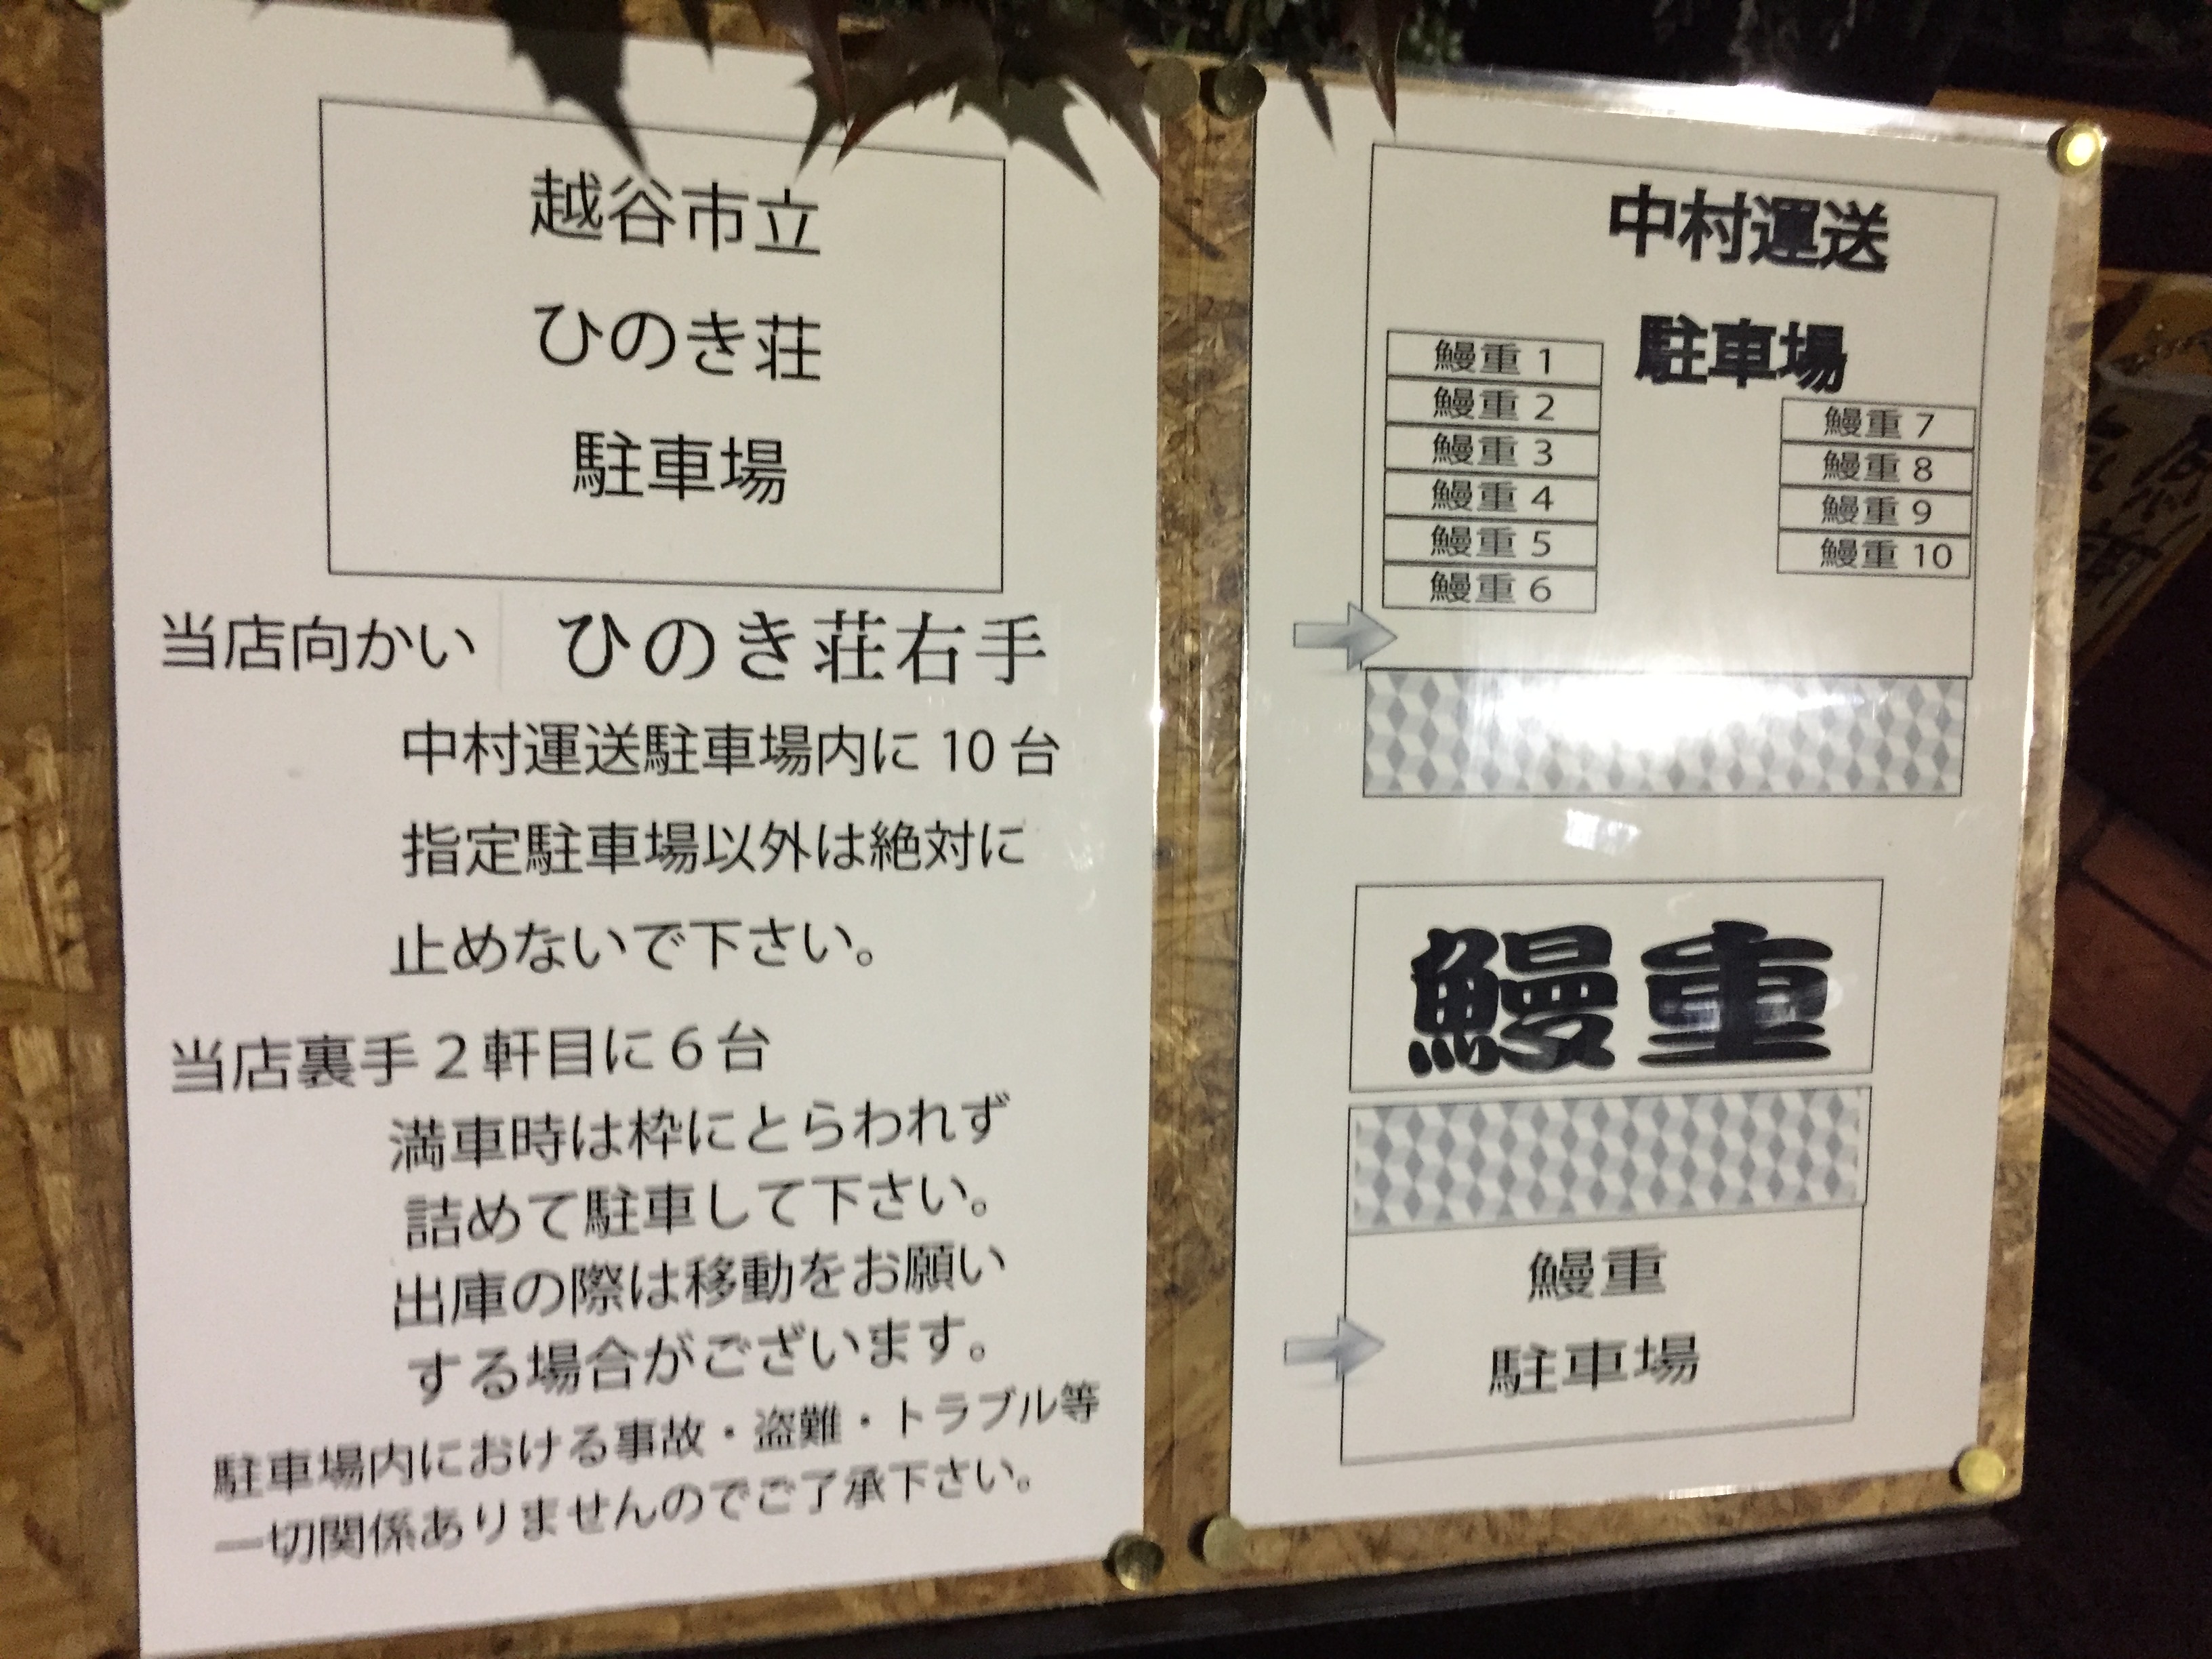 越谷市立
ひのき荘
駐車場
当店向かい ひのき荘右手
中村運送駐車場内に 10 台
指定駐車場以外は絶対に
止めないで下さい。
当店裏手２軒目に６台
満車時は枠にとらわれず
詰めて駐車して下さい。
出庫の際は移動をお願い
する場合がございます。
駐車場内における事故・盗難・トラブル等
一切関係ありませんのでご了承下さい。
中村運送
駐車場
鰻重 1
鰻重 2
鰻重 3
鰻重 4
鰻重 5
鰻重 6
鰻重 7
鰻重 8
鰻重 9
鰻重 10
鰻重
鰻重
駐車場